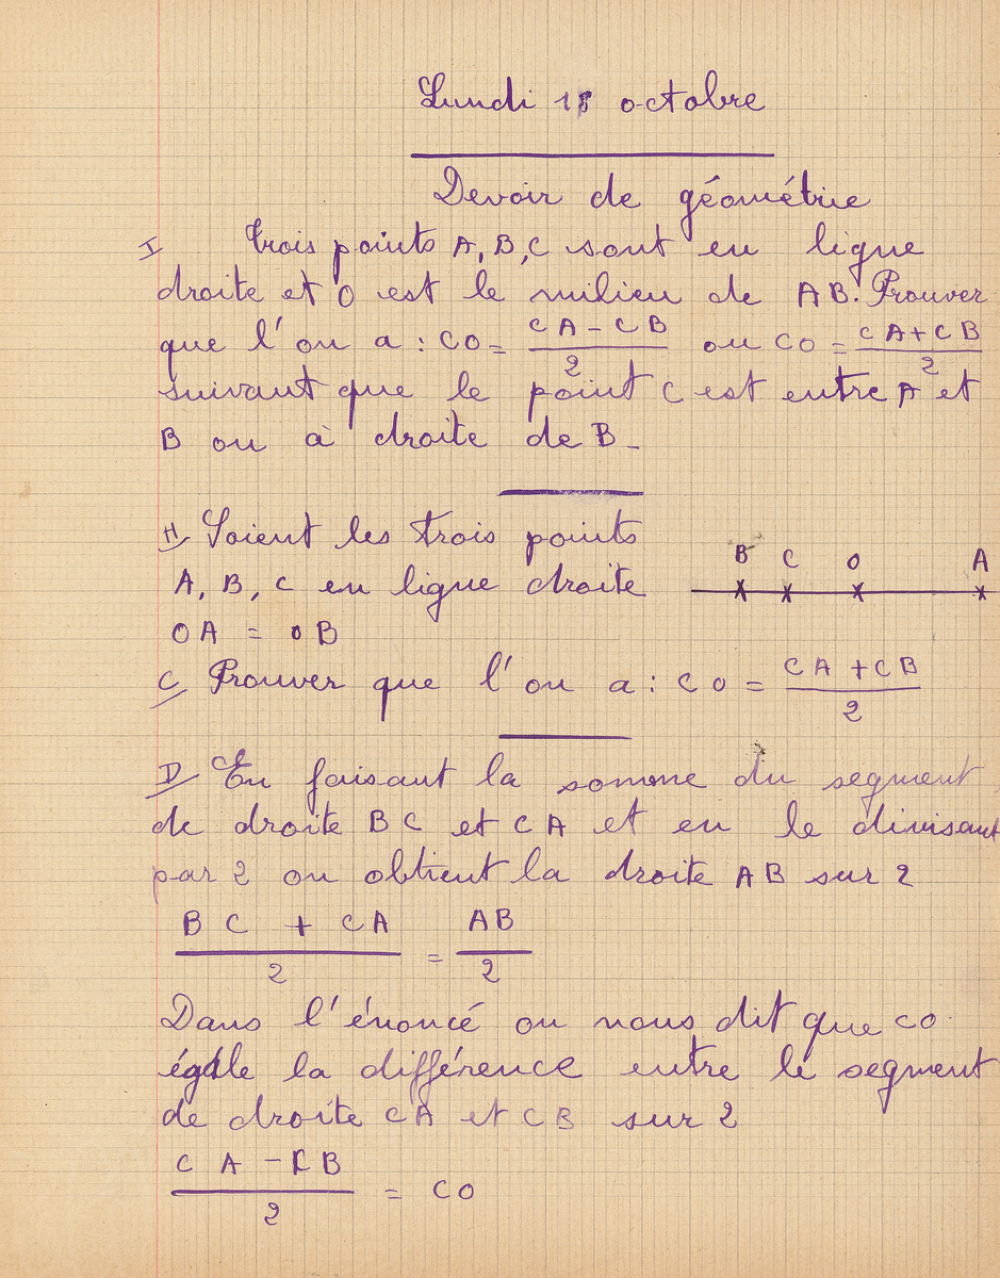 Lundi 18 octobre
Devoir de géométrie
I Trois points A, B, C sont en ligne
droite et O est le milieu de AB. Prouver
que l'on a : CO = (CA - CB)/2 ou CO = (CA + CB)/2
suivant que le point C est entre A et
B ou à droite de B -
H Soient les trois points
A, B, C en ligne droite
OA = OB
B C O A
C Prouver que l'on a : CO = (CA + CB)/2
D En faisant la somme du segment
de droite BC et CA et en le divisant
par 2 on obtient la droite AB sur 2
(BC + CA)/2 = AB/2
Dans l'énoncé on nous dit que CO
égale la différence entre le segment
de droite CA et CB sur 2
(CA - CB)/2 = CO